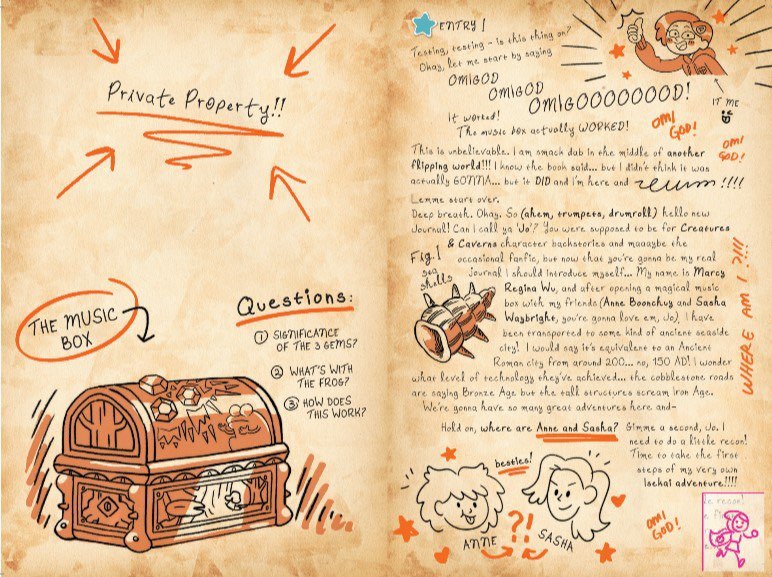 Private Property!!
THE MUSIC
BOX
Questions:
1 SIGNIFICANCE
OF THE 3 GEMS?
2 WHAT'S WITH
THE FROG?
3 HOW DOES
THIS WORK?
ENTRY 1
Testing, testing - is this thing on?
Okay, let me start by saying
OMIGOD
OMIGOD
OMIGOOOOOOOD!
IT ME
It worked!
The music box actually WORKED!
OMI
GOD!
OMI
GOD!
This is unbelievable. I am smack dab in the middle of another
flipping world!!! I know the book said... but I didn't think it was
actually GONNA... but it DID and I'm here and !!!!
Lemme start over.
Deep breath. Okay. So (ahem, trumpets, drumroll) hello new
Journal! Can I call ya 'Jo'? You were supposed to be for Creatures
& Caverns character backstories and maaaybe the
occasional fanfic, but now that you're gonna be my real
journal I should introduce myself... My name is Marcy
Regina Wu, and after opening a magical music
box with my friends (Anne Boonchuy and Sasha
Waybright, you're gonna love em, Jo), I have
been transported to some kind of ancient seaside
city! I would say it's equivalent to an Ancient
Roman city from around 200... no, 150 AD! I wonder
what level of technology they've achieved... the cobblestone roads
are saying Bronze Age but the tall structures scream Iron Age.
We're gonna have so many great adventures here and-
Fig. 1
sea
shells
WHERE AM I ?!!!
Hold on, where are Anne and Sasha? Gimme a second, Jo. I
need to do a little recon!
Time to take the first
steps of my very own
Isekai adventure!!!!
besties!
ANNE
?!
SASHA
OMI
GOD!